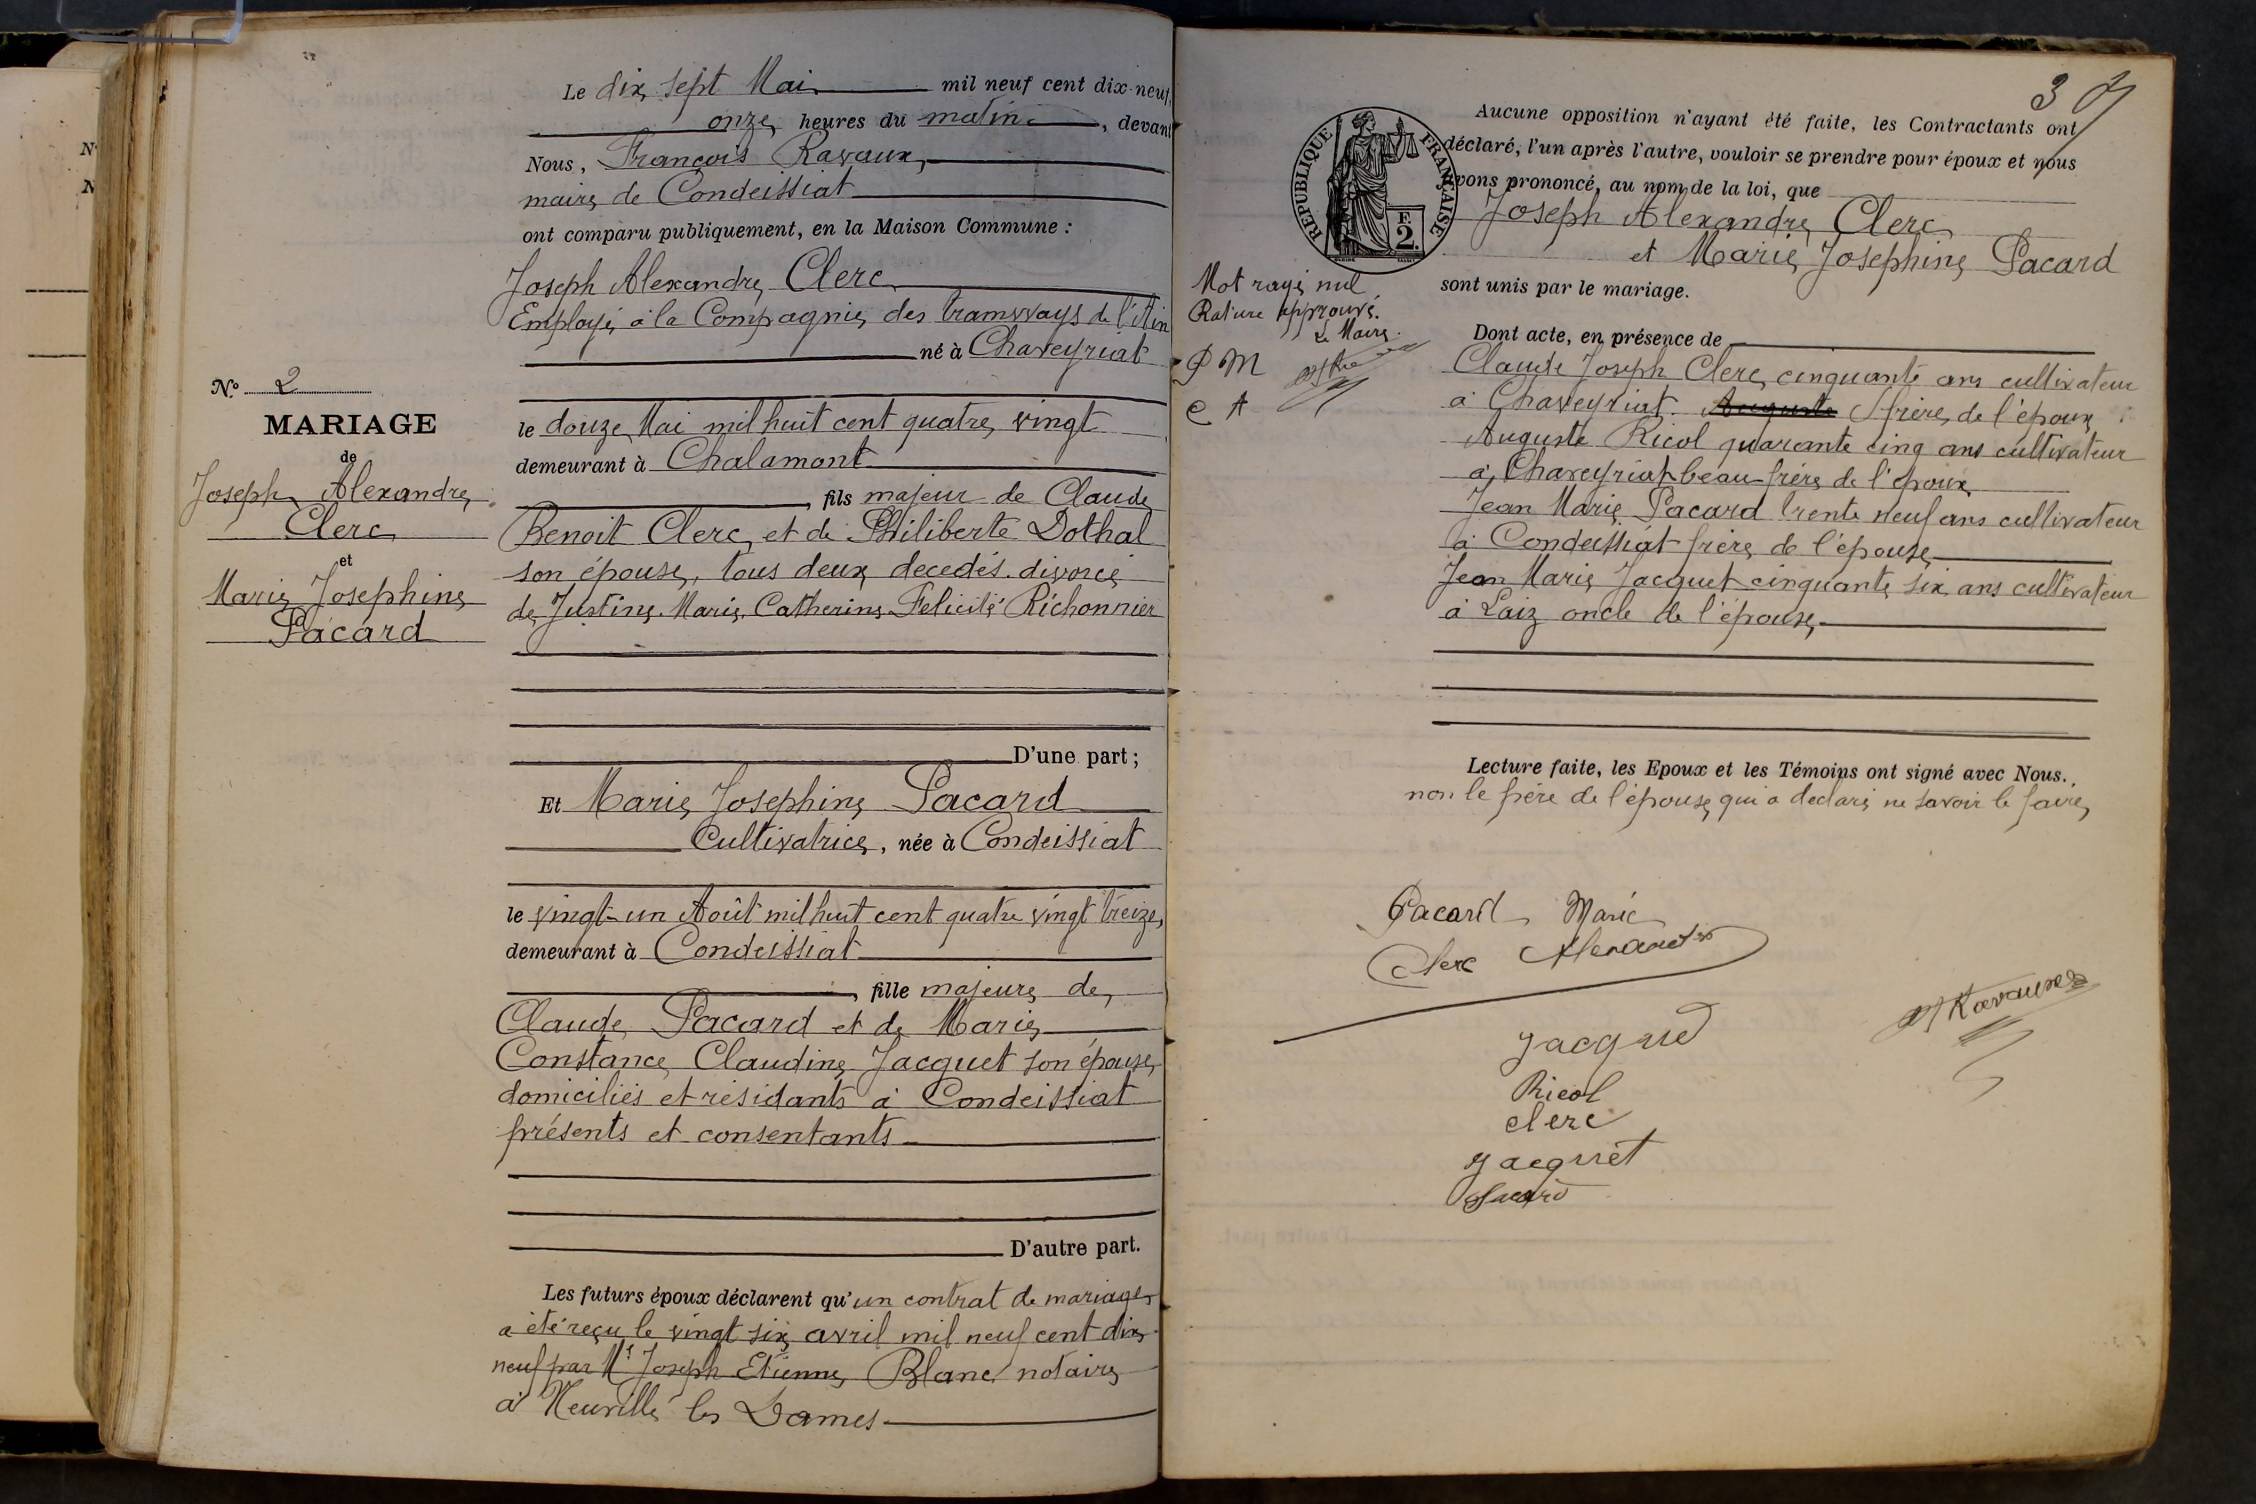 N°
N
N° 2
MARIAGE
de
Joseph Alexandre
Clerc
et
Marie Josephine
Pacard
Le dix sept Mai mil neuf cent dix-neuf,
onze heures du matin, devant
Nous, François Ravaux,
maire de Condeissiat
ont comparu publiquement, en la Maison Commune :
Joseph Alexandre Clerc
Employé à la Compagnie des tramways de l'Ain
né à Chaveyriat
le douze Mai mil huit cent quatre vingt
demeurant à Chalamont
, fils majeur de Claude
Benoit Clerc, et de Philiberte Dothal
son épouse, tous deux decedés. divorcé
de Justine Marie Catherine Felicité Richonnier
D'une part ;
Et Marie Josephine Pacard
Cultivatrice, née à Condeissiat
le vingt-un Août mil huit cent quatre vingt treize,
demeurant à Condeissiat
, fille majeure de
Claude Pacard et de Marie
Constance Claudine Jacquet son épouse,
domiciliés et résidants à Condeissiat
présents et consentants
D'autre part.
Les futurs époux déclarent qu'un contrat de mariage
a été reçu le vingt six avril mil neuf cent dix
neuf par Me Joseph Etienne Blanc notaire
à Neuville les Dames
3
RÉPUBLIQUE FRANÇAISE
F.
2.
Aucune opposition n'ayant été faite, les Contractants ont
déclaré, l'un après l'autre, vouloir se prendre pour époux et nous
avons prononcé, au nom de la loi, que
Joseph Alexandre Clerc
et Marie Josephine Pacard
sont unis par le mariage.
Mot rayé nul
Rature approuvé.
Le Maire.
P M
C A
Dont acte, en présence de
Claude Joseph Clerc, cinquante ans cultivateur
à Chaveyriat. Auguste frère de l'époux
Auguste Ricol quarante cinq ans cultivateur
à Chaveyriat beau-frère de l'époux
Jean Marie Pacard trente neuf ans cultivateur
à Condeissiat frère de l'épouse
Jean Marie Jacquet cinquante six ans cultivateur
à Laiz oncle de l'épouse,
Lecture faite, les Epoux et les Témoins ont signé avec Nous.
non le père de l'épouse qui a declaré ne savoir le faire,
Pacard Marie
Clerc Alexandre
Jacquet
Ravaux
Ricol
clerc
Jacquet
Pacard